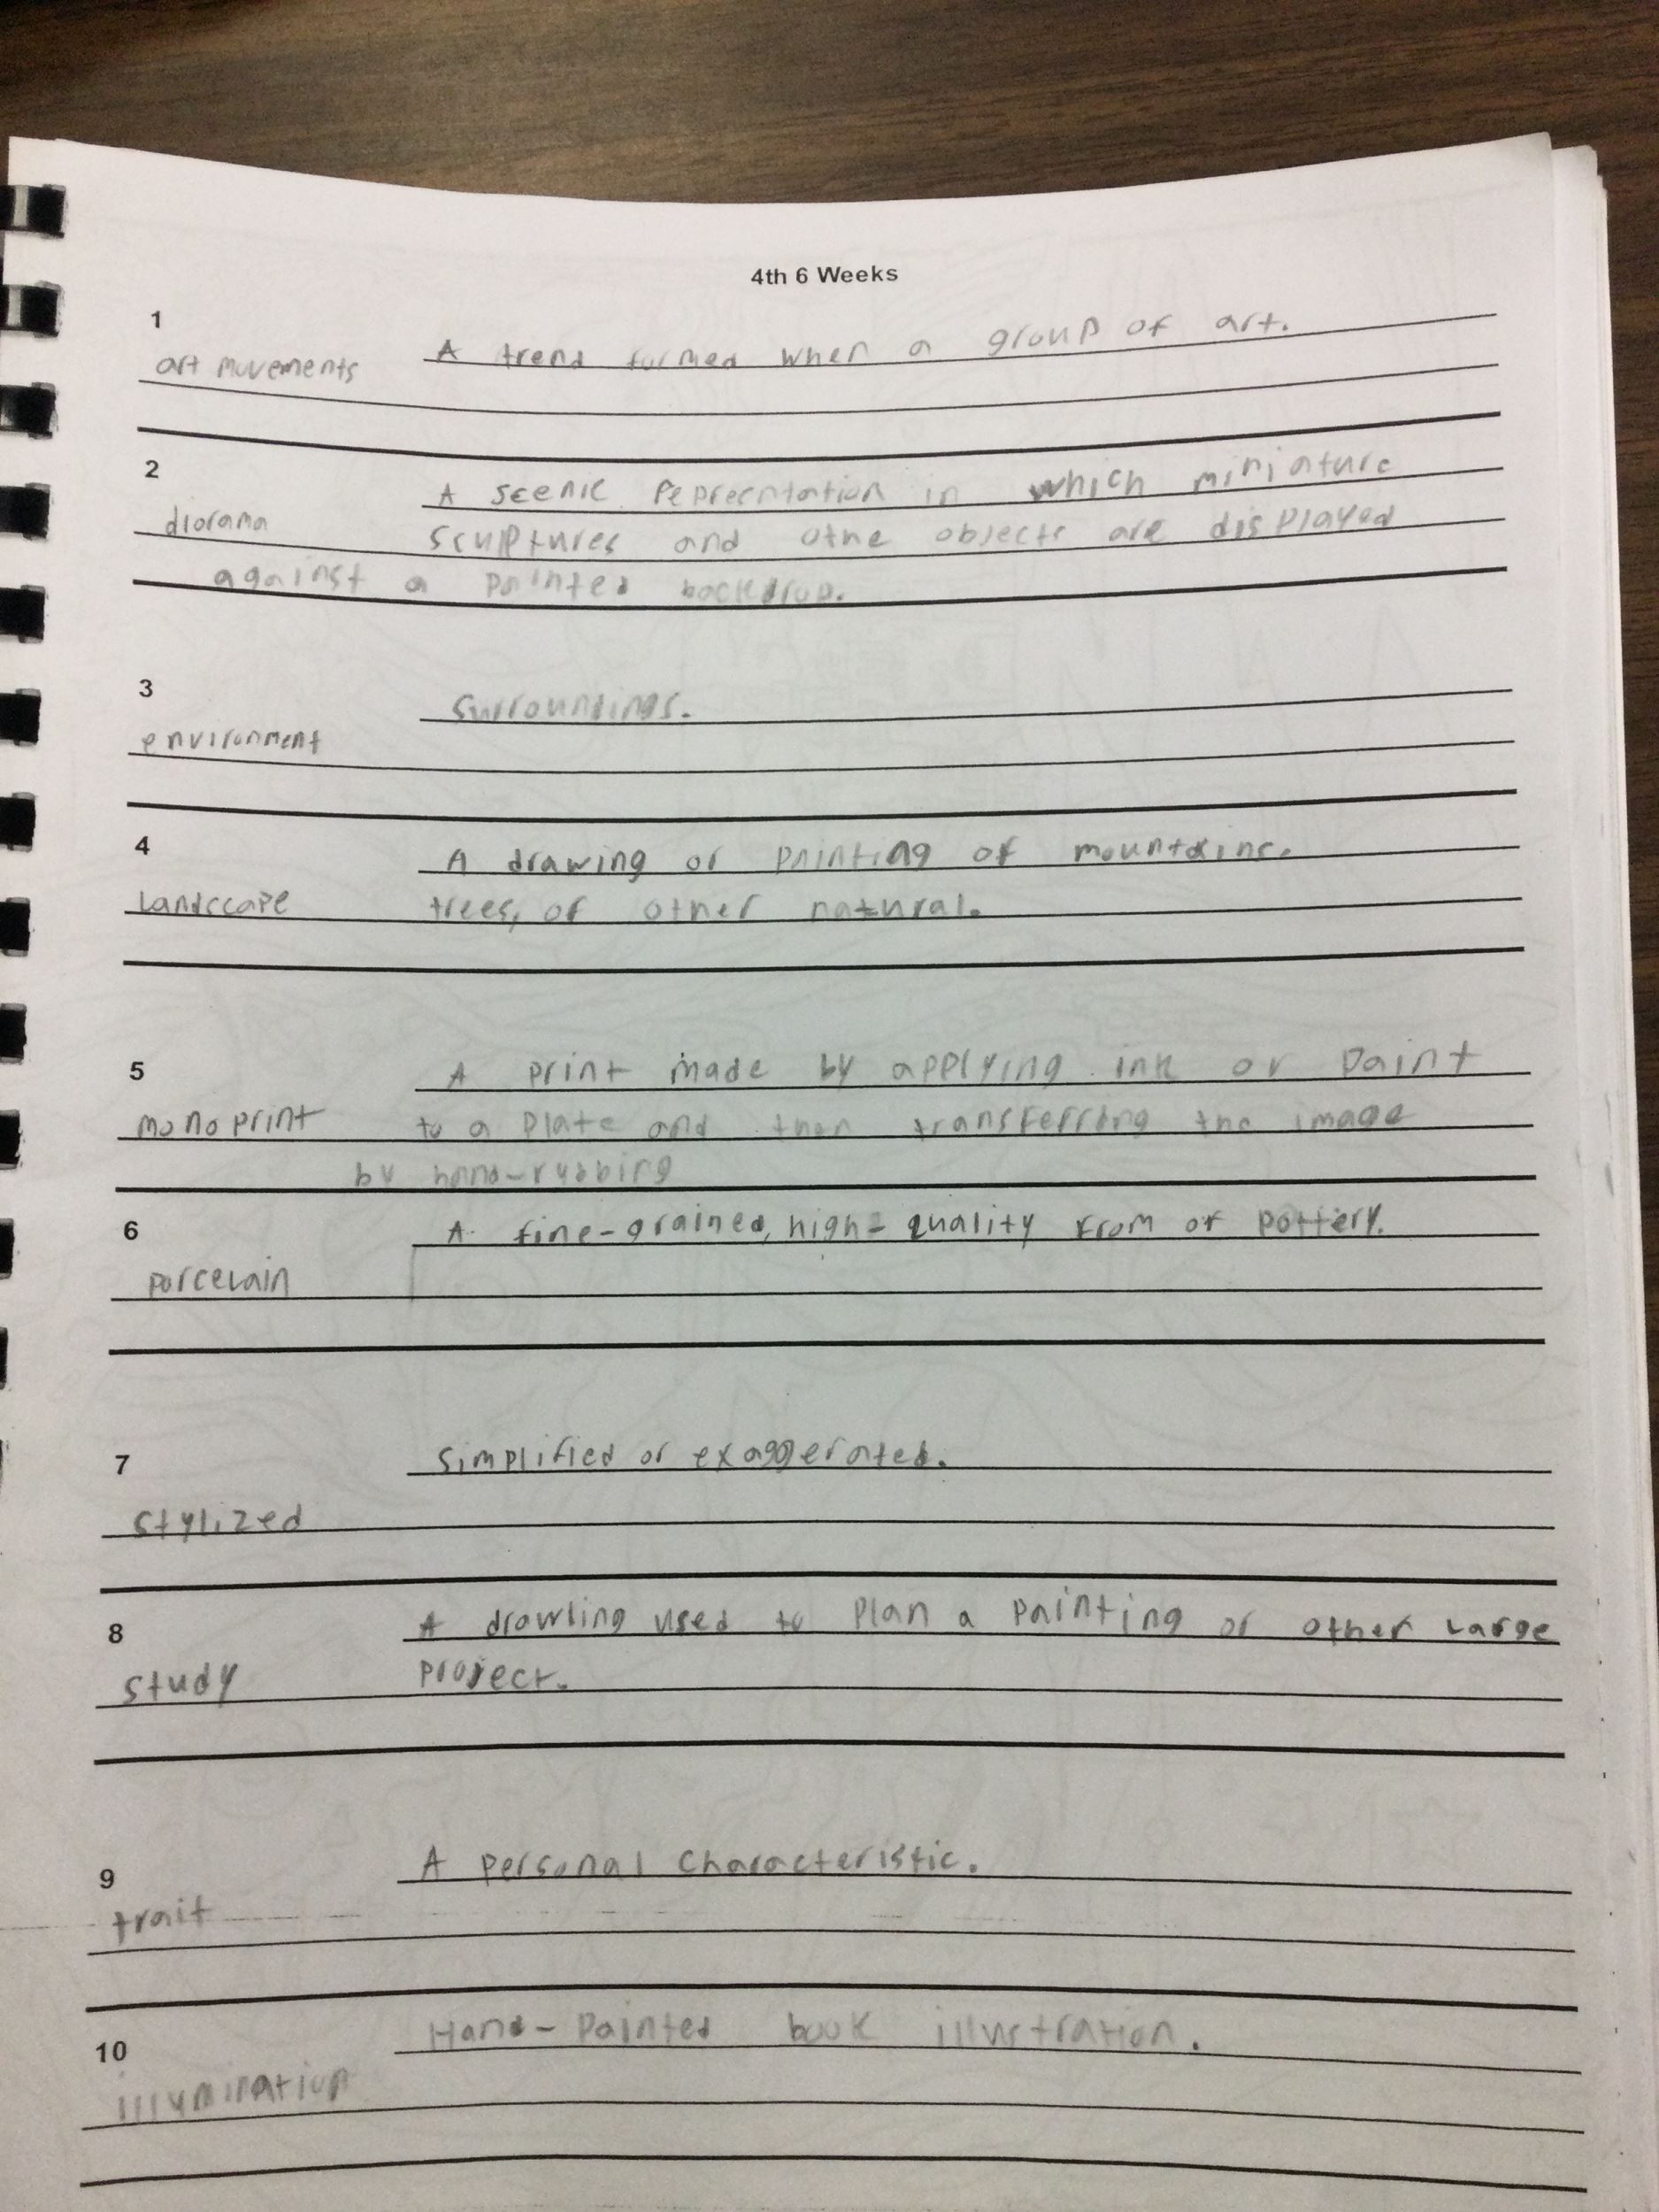 4th 6 Weeks
1
A trend formed when a group of art.
art movements
2
A scenic Reprecntation in which miniature
diorama
sculptures and othe objects are displayed
against a painted backdrop.
3
Surroundings.
environment
4
A drawing or painting of mountains.
Landscape
trees, or other natural.
5
A print made by applying ink or paint
monoprint
to a plate and then transferring the image
by hand-rubbing
6
A fine-grained, high-quality from of pottery.
porcelain
7
Simplified or exaggerated.
stylized
8
A drawling used to Plan a painting or other Large
study
project.
9
A personal Characteristic.
trait
10
Hand-Painted book illustration.
illumination